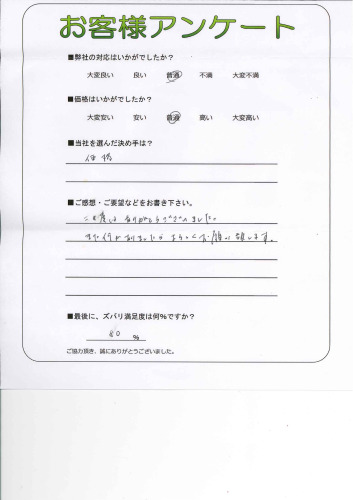 お客様アンケート
■弊社の対応はいかがでしたか?
大変良い 良い 普通 不満 大変不満
■価格はいかがでしたか?
大変安い 安い 普通 高い 大変高い
■当社を選んだ決め手は?
価格
■ご感想・ご要望などをお書き下さい。
この度は ありがとうございました。
また何かありましたら よろしくお願い致します。
■最後に、ズバリ満足度は何%ですか?
80 %
ご協力頂き、誠にありがとうございました。